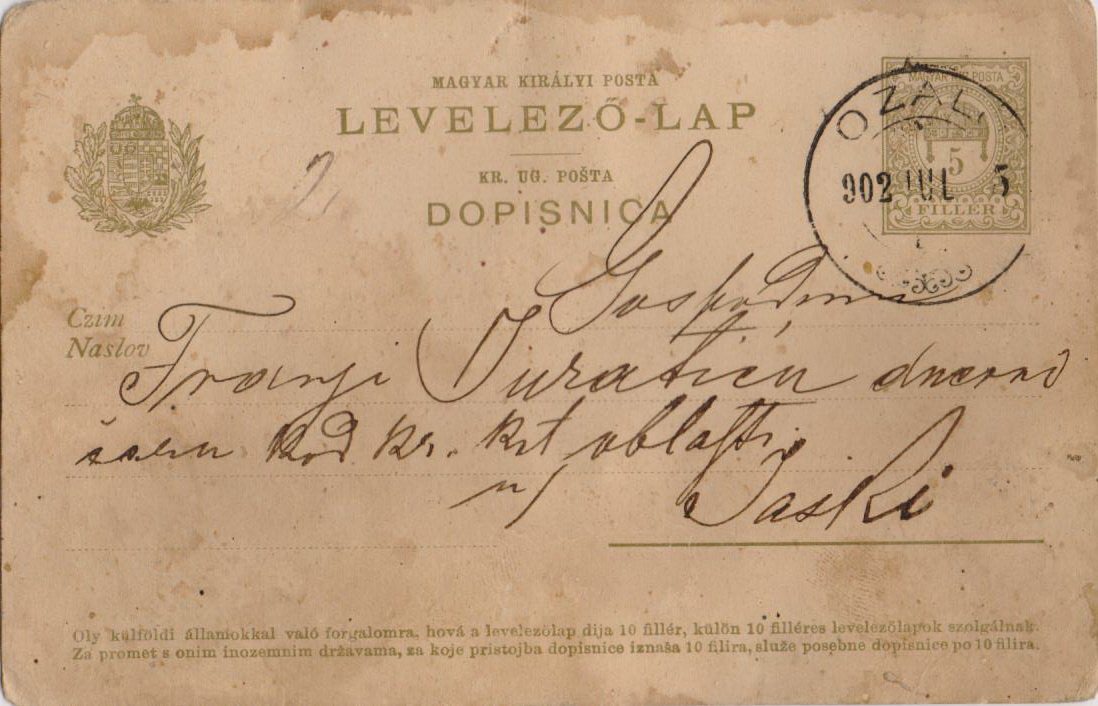 MAGYAR KIRÁLYI POSTA
LEVELEZŐ-LAP
KR. UG. POŠTA
DOPISNICA
MAGYAR KIR. POSTA
5
FILLÉR
OZALJ
902 JUL 5
2
Czim
Naslov
Gospodinu
Franji Juratiću dnevni
čaru kod kr. kot oblasti
u Jaski
Oly külföldi államokkal való forgalomra, hová a levelezőlap dija 10 fillér, külön 10 filléres levelezőlapok szolgálnak.
Za promet s onim inozemnim državama, za koje pristojba dopisnice iznaša 10 filira, služe posebne dopisnice po 10 filira.